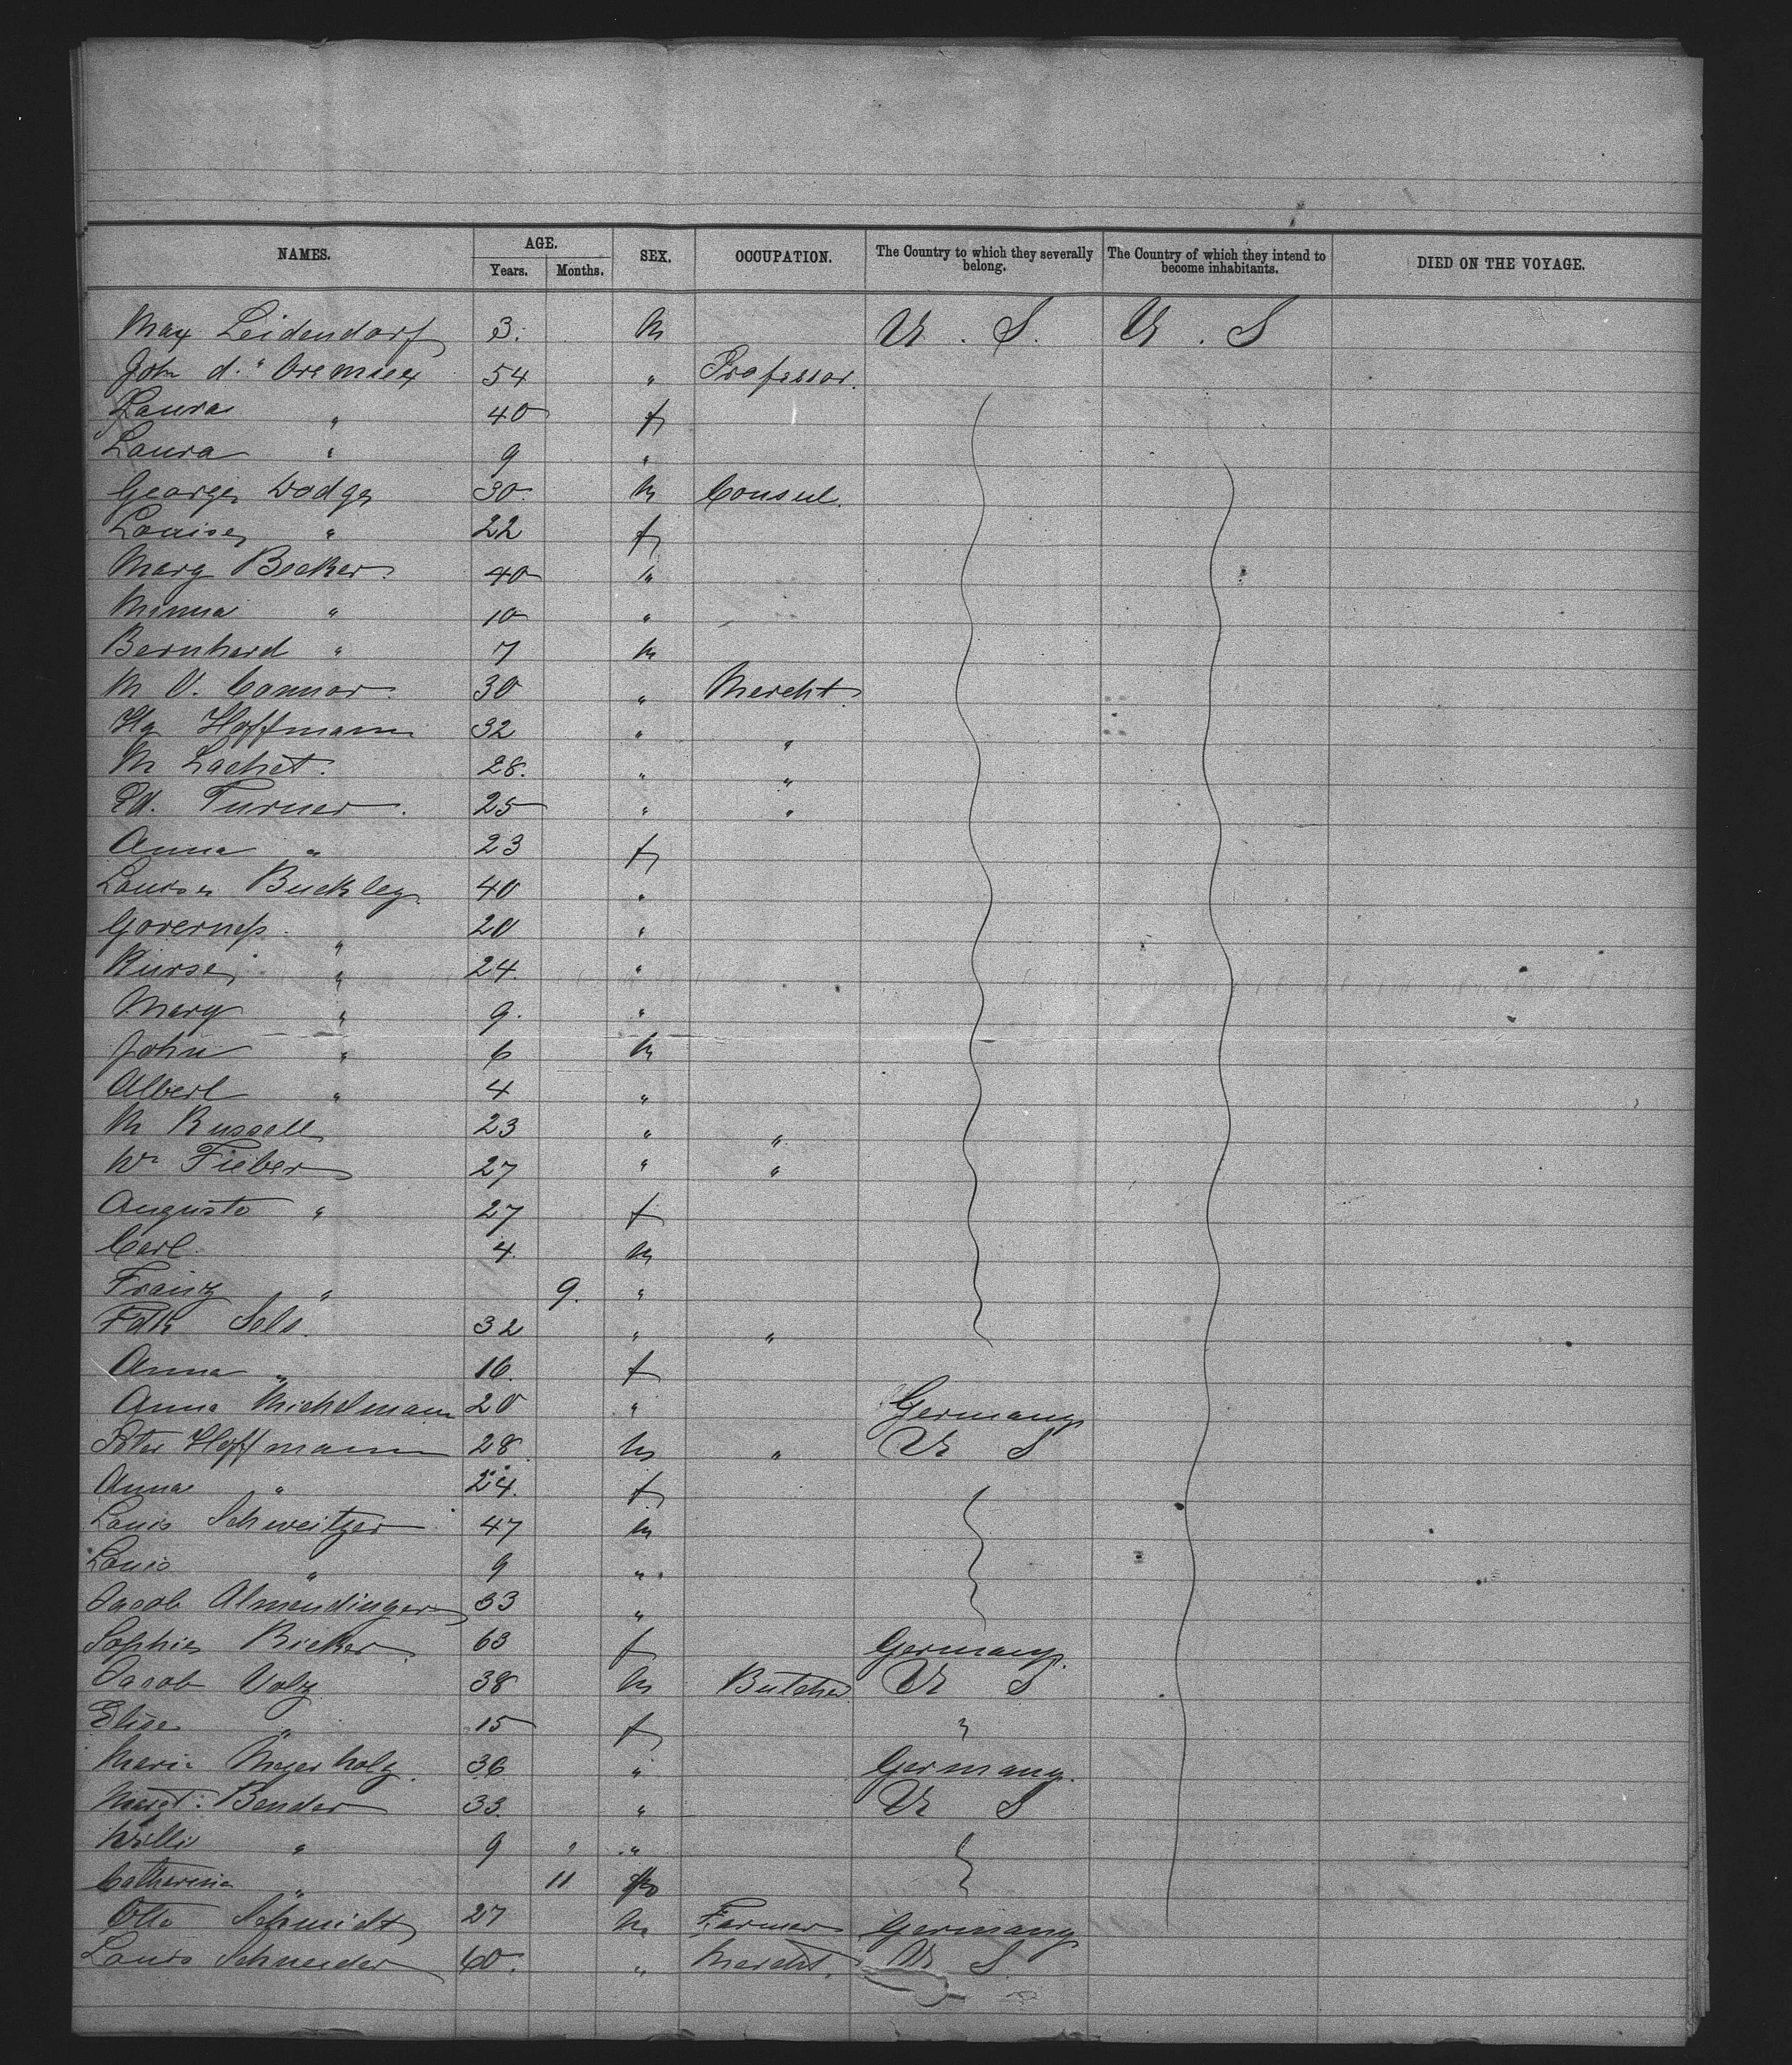 NAMES. AGE. SEX. OCCUPATION. The Country to which they severally belong. The Country of which they intend to become inhabitants. DIED ON THE VOYAGE.
Years. Months.
Max Leidendorf 3. M U. S. U. S
John d." Oremieux 54 " Professor.
Laura " 40 f
Laura " 9 "
George Dodge 30. M Consul.
Louise " 22 f
Marg Becker. 40 "
Minna " 10 "
Bernhard " 7 M
M O. Connor. 30 " Mercht.
Hy Hoffmann 32 " "
M Lachet. 28. " "
Ed. Turner. 25 " "
Anna " 23 f
Louise Buckley. 40 "
Governess. " 20 "
Nurse " 24. "
Mary " 9. "
John " 6 M
Albert " 4 "
M Russell 23 " "
Wm Fieber 27 " "
Augusto " 27 f
Carl. 4. M
Franz " 9. "
Fdk Sels. 32 " "
Anna " 16. f
Anna Michelmann 20 " Germany
Peter Hoffmann 28 M " U S
Anna " 24. f
Louis Schweitzer 47 M
Louis " 9 "
Jacob Almendinger 33 "
Sophie Rieker. 63 f Germany.
Jacob Volz 38 M Butcher U S
Elise " 15 f "
Maria Meyerholz. 36 " Germany.
Margt. Bender 33. " U S
Willi " 9 " "
Catherina " 11
Otto Schmidt 27 M Farmer Germany
Louis Schneider 60. " Mercht. U S